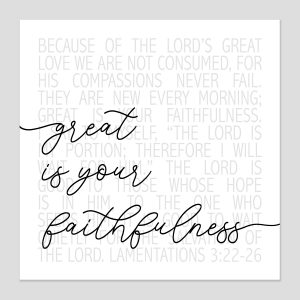 BECAUSE OF THE LORD'S GREAT
LOVE WE ARE NOT CONSUMED, FOR
HIS COMPASSIONS NEVER FAIL.
THEY ARE NEW EVERY MORNING;
GREAT YOUR FAITHFULNESS.
"THE LORD IS
PORTION; THEREFORE I WILL
THE LORD IS
WHOSE HOPE
IS IN HIM, TO THE ONE WHO
THE LORD. LAMENTATIONS 3:22-26
great
is your
faithfulness